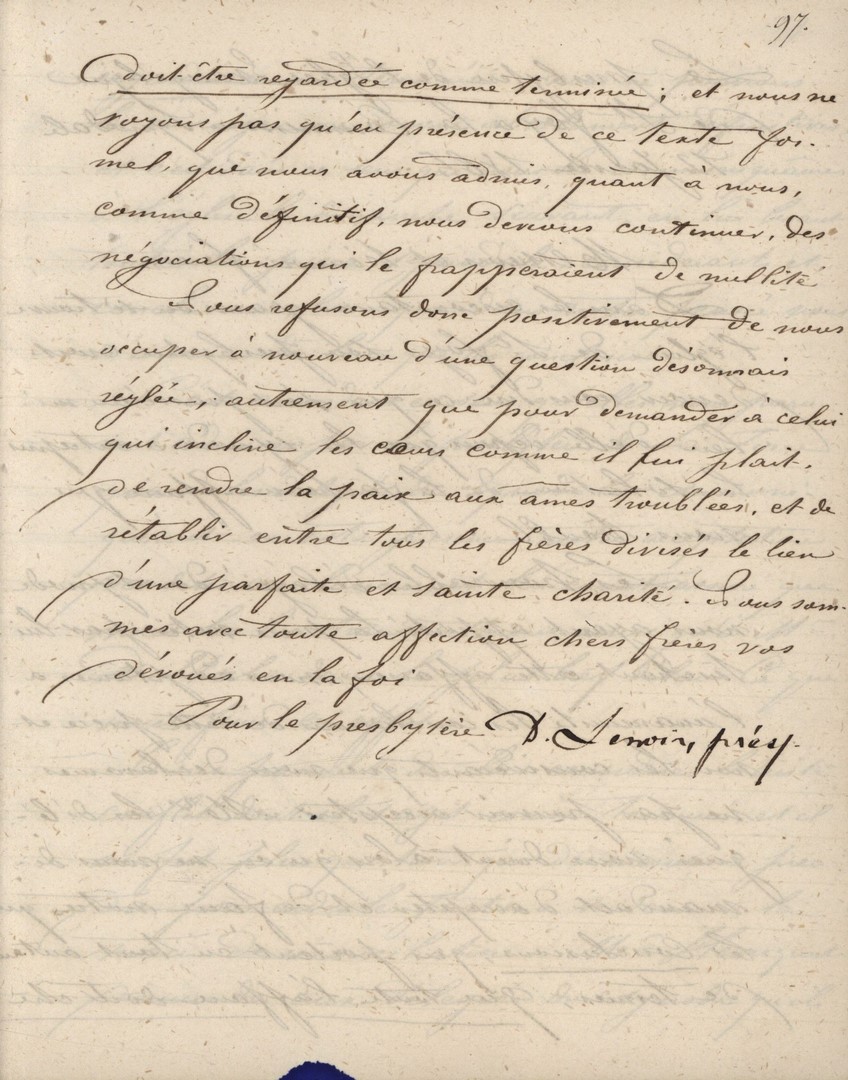 97.
doit être regardée comme terminée ; et nous ne
voyons pas qu'en présence de ce texte for-
mel, que nous avons admis, quant à nous,
comme définitif, nous devions continuer, des
négociations qui le frapperaient de nullité
Nous refusons donc positivement de nous
occuper à nouveau d'une question désormais
réglée, autrement que pour demander à celui
qui incline les cœurs comme il lui plait,
de rendre la paix aux âmes troublées, et de
rétablir entre tous les frères divisés le lien
d'une parfaite et sainte charité. Nous som-
mes avec toute affection chers frères vos
dévoués en la foi
Pour le presbytère D. Lenoir, prés.